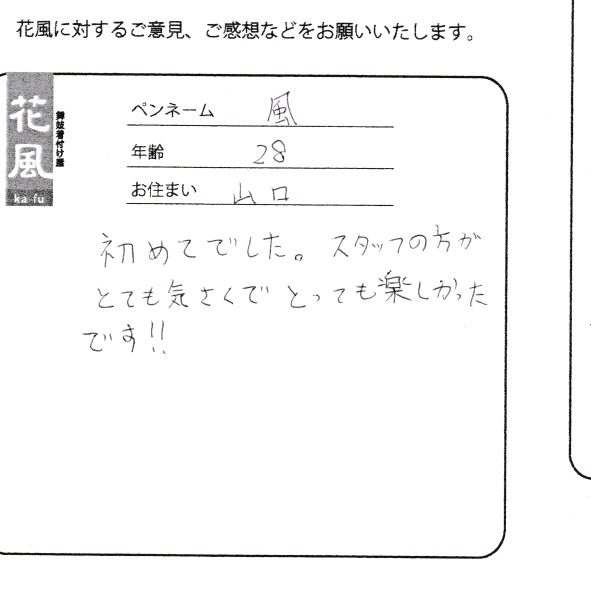 花風に対するご意見、ご感想などをお願いいたします。
花風
舞妓着付け屋
ka fu
ペンネーム 風
年齢 28
お住まい 山口
初めてでした。スタッフの方が
とても気さくでとっても楽しかった
です!!